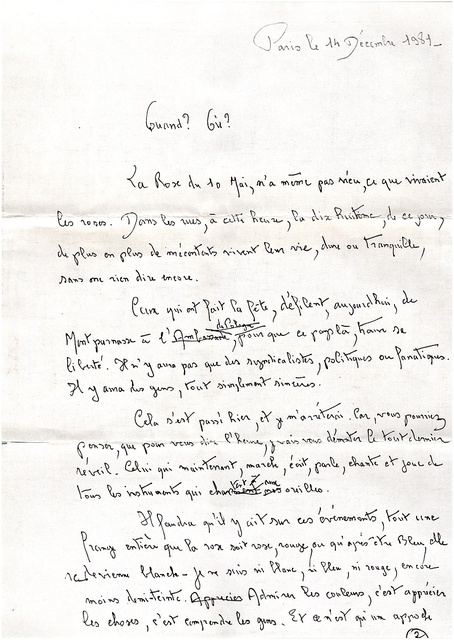 Paris le 14 Décembre 1981
Quand? Où?
La Rose du 10 Mai, n'a même pas vécu, ce que vivaient
les roses. Dans les rues, à cette heure, la dix huitième, de ce jour,
de plus en plus de mécontents vivent leur vie, dure ou tranquille,
sans ne rien dire encore.
Ceux qui ont fait la fête, défilent, aujourd'hui, de
de Pologne
Montparnasse à l'Ambassade, pour que ce pays là, trouve sa
liberté. Il n'y aura pas que des syndicalistes, politiques ou fanatiques.
Il y aura des gens, tout simplement sincères.
Cela s'est passé hier, et j'y m'arrêterai. Car, vous pourriez
penser, que pour vous dire l'heure, j'vais vous démonter le tout dernier
réveil. Celui qui maintenant, marche, écrit, parle, chante et joue de
tous les instruments qui vont à nos oreilles.
Il faudra qu'il y ait sur ces événements, tout une
frange entière que la rose soit rose, rouge ou qu'après être Bleu, elle
redevienne blanche - Je ne suis ni blanc, ni bleu, ni rouge, encore
moins demi-teinte. Apprécier Admirer les couleurs, c'est apprécier
les choses, c'est comprendre les gens. Et ce n'est qu'un approche
2